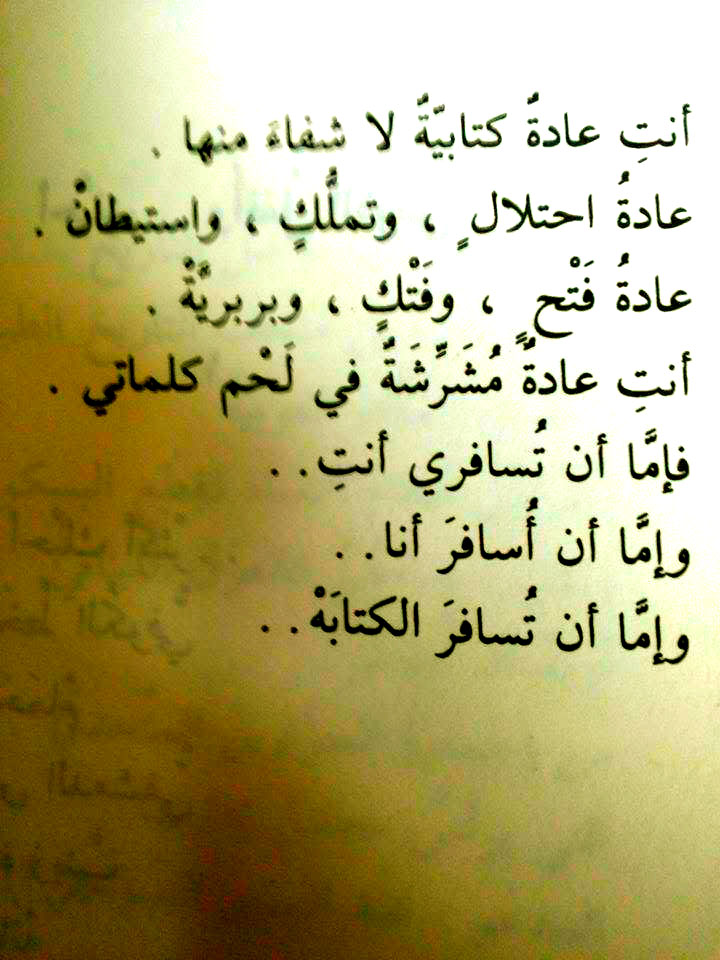 أنتِ عادةٌ كتابيَّةٌ لا شفاءَ منها .
عادةُ احتلال ٍ ، وتملُّكٍ ، واستيطانْ .
عادةُ فَتْح ٍ ، وفَتْكٍ ، وبربريَّةْ .
أنتِ عادةٌ مُشَرِّشَةٌ في لَحْم كلماتي .
فإمَّا أن تُسافري أنتِ . .
وإمَّا أن أُسافرَ أنا . .
وإمَّا أن تُسافرَ الكتابَهْ . .